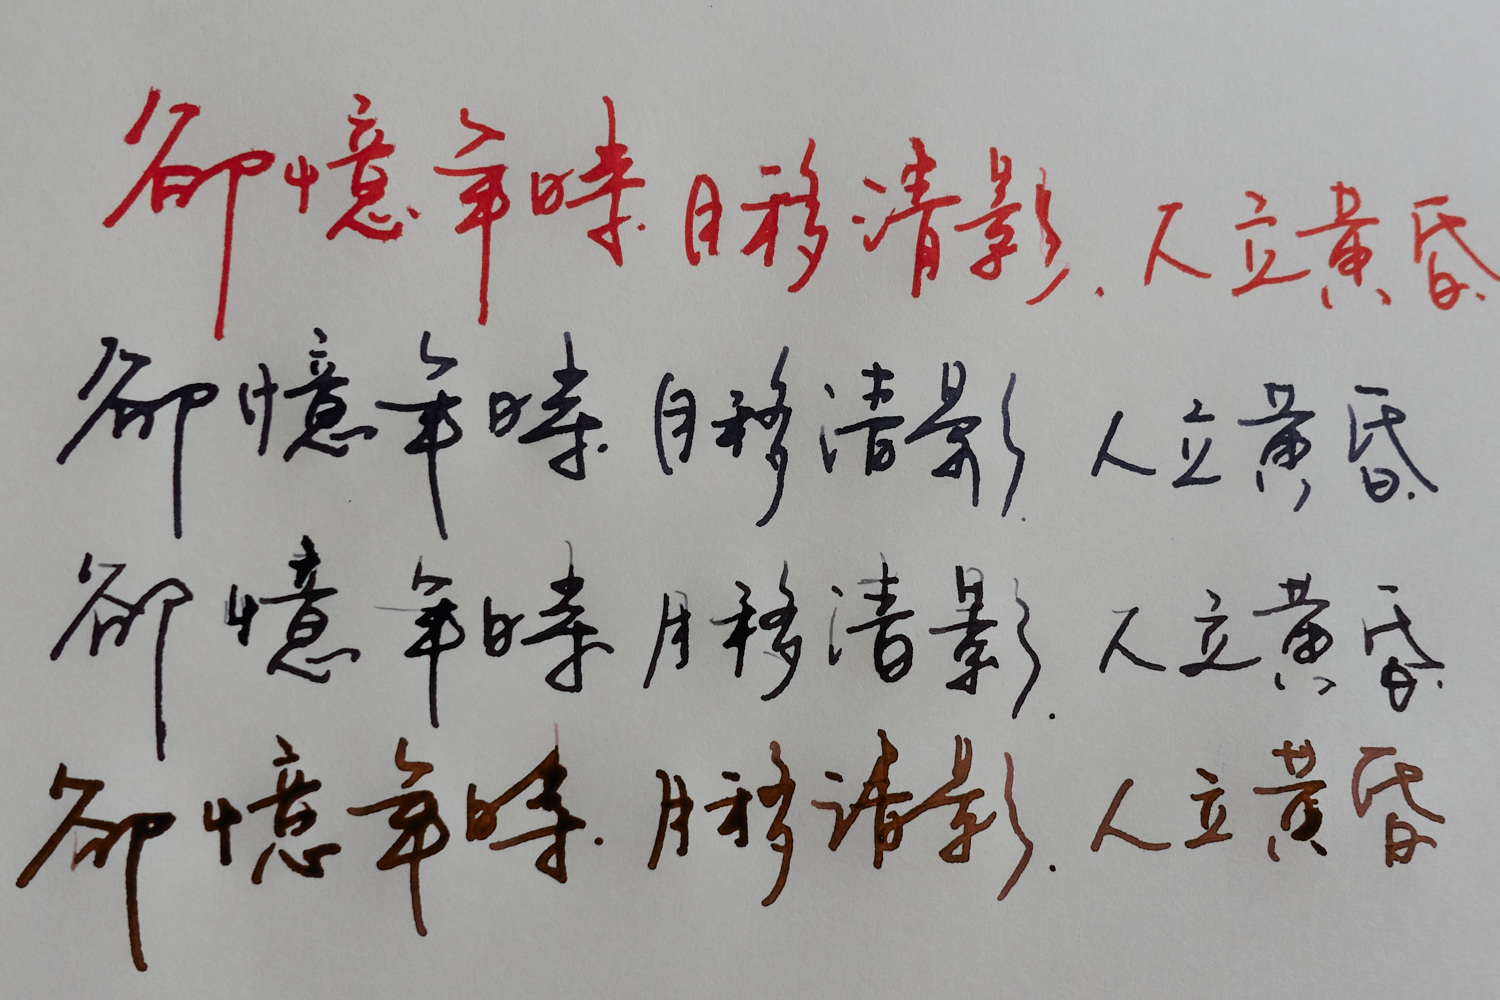 卻憶年時月移清影.人立黃昏.
卻憶年時.月移清影.人立黃昏.
卻憶年時月移清影.人立黃昏.
卻憶年時.月移清影.人立黃昏